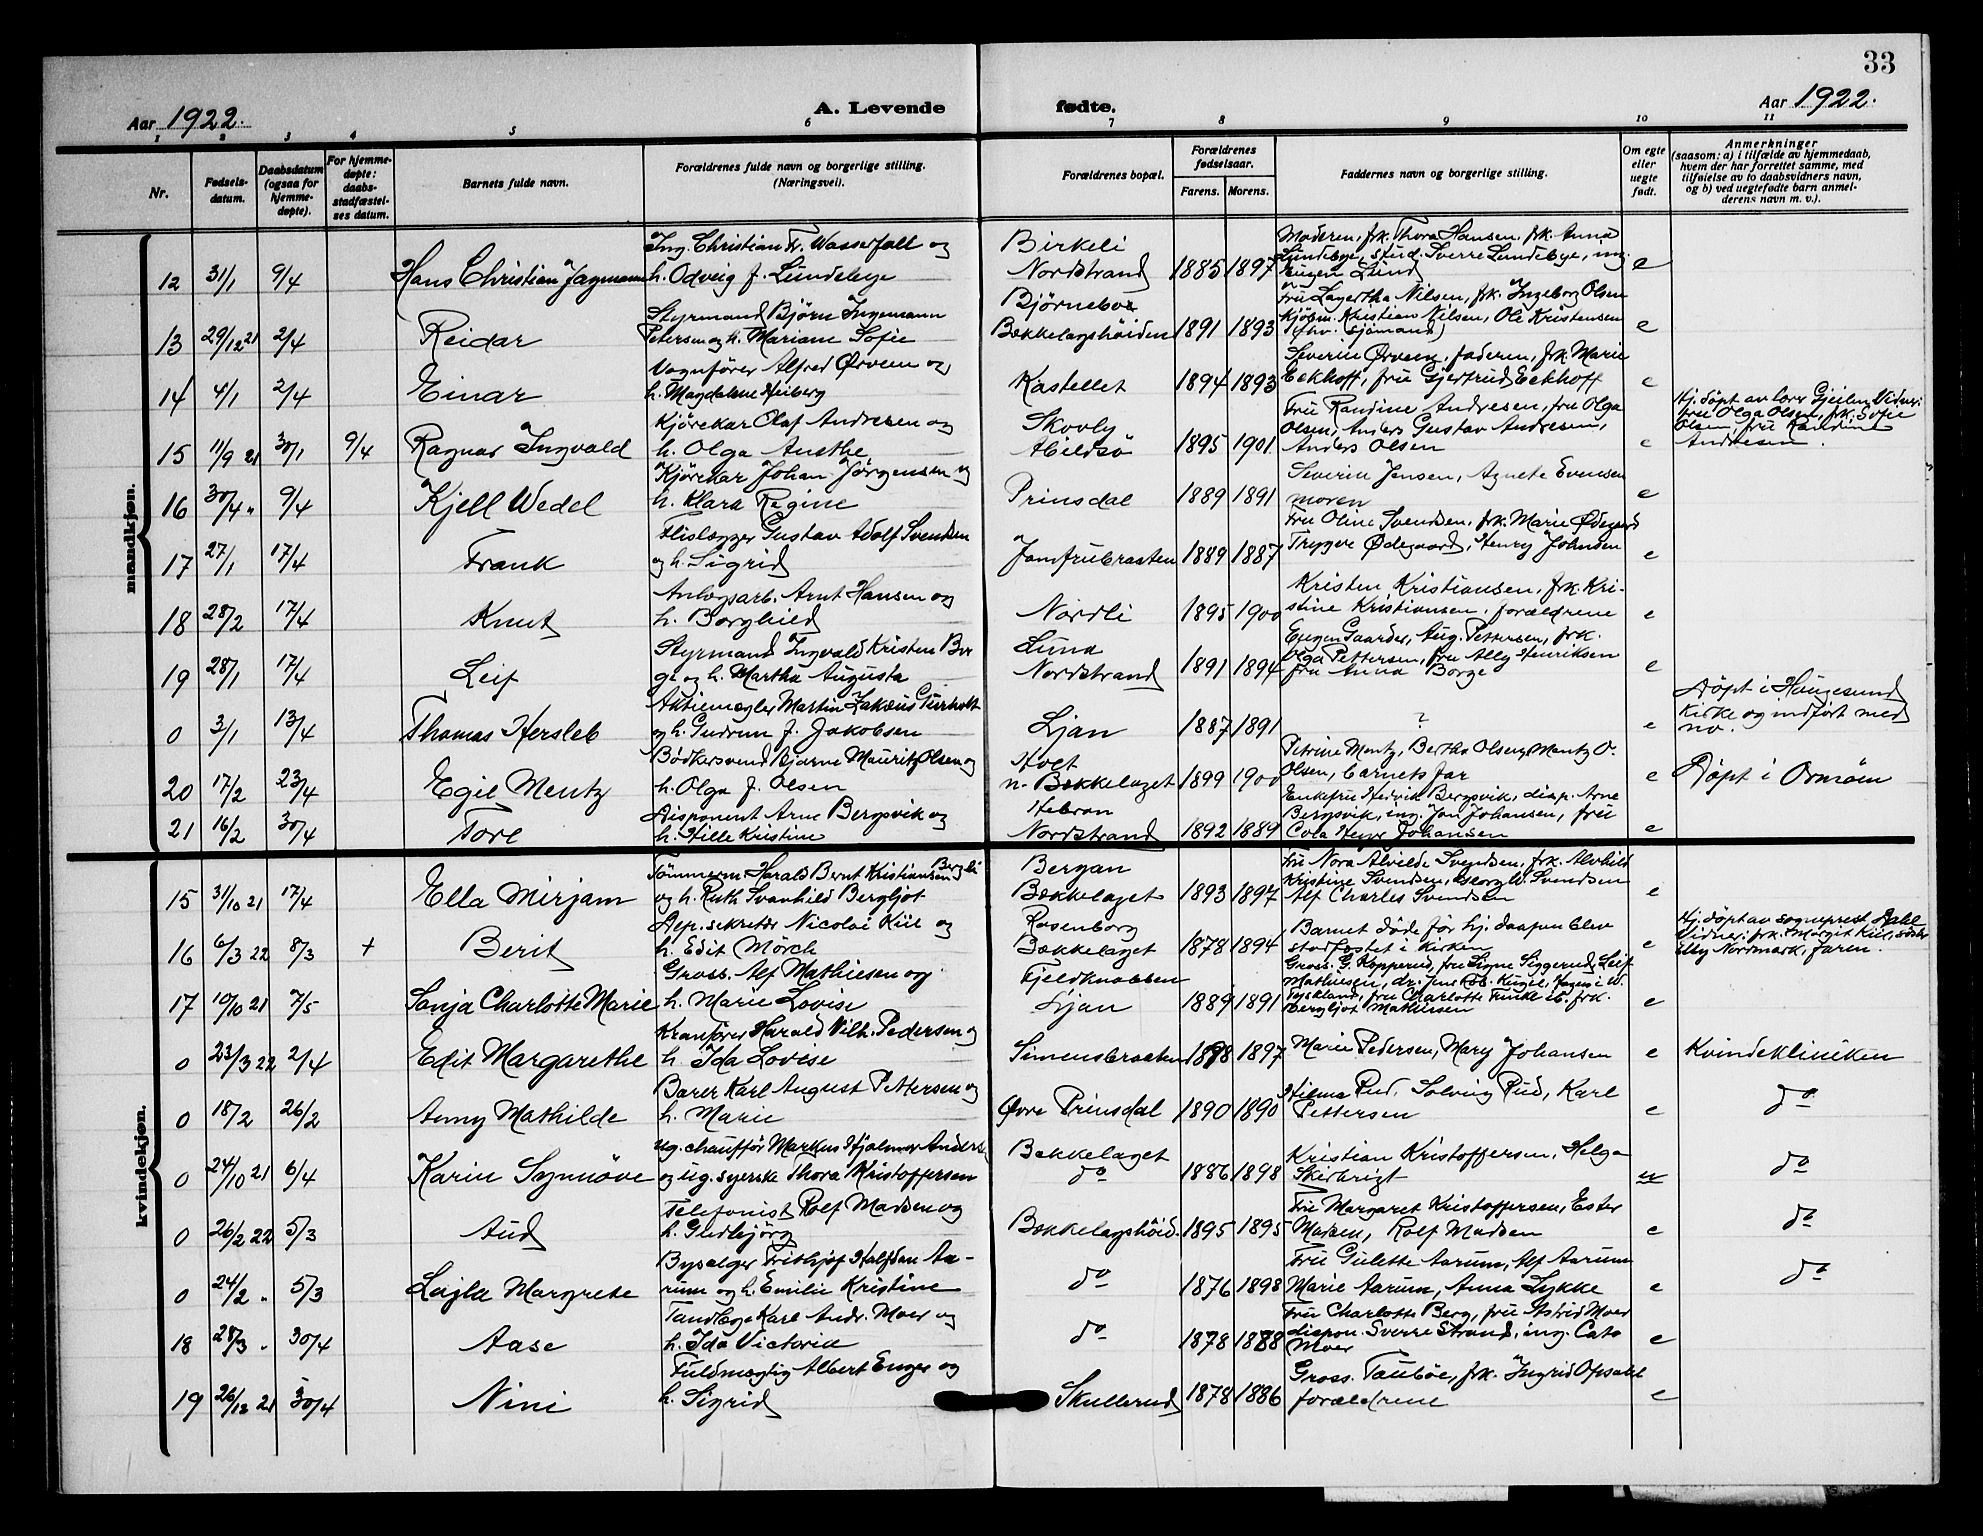 33
Aar 1922. A. Levende fødte. Aar 1922.
1 2 3 4 5 6 7 8 9 10 11
Nr.
Fødsels-
datum.
Daabsdatum
(ogsaa for
hjemme-
døpte).
For hjemme-
døpte:
daabs-
stadfæstel-
ses datum.
Barnets fulde navn.
Forældrenes fulde navn og borgerlige stilling.
(Næringsvei).
Forældrenes bopæl.
Forældrenes
fødselsaar.
Farens. Morens.
Faddernes navn og borgerlige stilling.
Om egte
eller
uegte
født.
Anmerkninger
(saasom: a) i tilfælde av hjemmedaab,
hvem der har forrettet samme, med
tilføielse av to daabsvidners navn,
og b) ved uegtefødte barn anmel-
derens navn m. v.).
mandkjøn.
12 31/1 9/4 Hans Christian
Ing. Christian Fr. Wasserfall og
h. Odveig f. Lundebye
Birkeli
Nordstrand 1885 1897
Moderen, frk. Thora Hansen, frk. Anna
Lundebye, stud. Sverre Lundebye, ing.
Eugen Lund e
13 29/12 21 2/4 Reidar
Styrmand Björn Ingemann
Petersen og h. Mariane Sofie
Björnebo
Bækkelagshöiden 1891 1893
fru Lagertha Nilsen, frk. Ingeborg Olsen
Kjöbm. Kristian Nilsen, Ole Kristensen
(sjömand) e
14 4/1 2/4 Einar
Vognfører Alfred Ørveen og
h. Magdalene Heiberg
Kastellet 1894 1893
Severin Ørveen, faderen, frk. Marie
Eckhoff, fru Gjertrud Eckhoff e
15 11/9 21 30/1 9/4 Ragnar Ingvald
Kjørekar Olaf Andresen og
h. Olga
Skovly
Hildsö 1895 1901
Fru Randine Andresen, fru Olga
Olsen, Anders Gustav Andresen,
Anders Olsen e
Hj. døpt av lærer Gjeilen, Vidner:
fru Olga Olsen, frk. Sofie
Olsen, fru Randine
Andresen.
16 30/4 " 9/4 Kjell Wedel
Kjørekar Johan Jörgensen og
h. Klara Regine
Prinsdal 1889 1891
Severin Jensen, Agnete Evensen
moren e
17 27/1 17/4 Frank
Flislægger Gustav Adolf Svendsen
og h. Sigrid
Jomfrubraaten 1889 1887
Fru Oline Svendsen, frk. Marie Ødegaard
Trygve Ødegaard, Henry Johnsen e
18 28/2 17/4 Knut
Anlægsarb. Arnt Hansen og
h. Borghild
Nordli 1895 1900
Kristen Kristiansen, frk. Kri-
stine Kristiansen, forældrene e
19 28/1 17/4 Leif
Styrmand Ingvald Kristen Bor
ge og h. Martha Augusta
Luna
Nordstrand 1891 1894
Eugen Gaarder, Aug. Pettersen, frk.
Olga Pettersen, fru Ally Henriksen
fru Anna Borge e
0 3/1 13/4 Thomas Hersleb
Aktiemægler Martin Zakæus
og h. Gudrun f. Jakobsen
Ljan 1887 1891 ? e
Döpt i Haugesund
Kirke og indført med
no.
20 17/2 23/4 Egil Mentz
Bödkersvend Bjarne Mauritz Olsen og
h. Olga f. Olsen
Holt
n. Bækkelaget 1899 1900
Petrine Mentz, Bertha Olsen, Mentz O.
Olsen, barnets far e
Døpt i Ormöen
21 16/2 30/4 Tore
Disponent Arne Bergsvik og
h. Hille Kristine
Hebron
Nordstrand 1892 1889
Enkefru Hedvik Bergsvik, disp. Arne
Bergsvik, ing. Jan Johansen, fru
Cola Johansen e
kvindekjøn.
15 31/10 21 17/4 Ella Mirjam
Tömmerm. Harald Bernt Kristiansen
og h. Ruth Svanhild Bergljot
Bergan
Bækkelaget 1893 1897
Fru Nora Alvilde Svendsen, frk. Alvhild
Kristine Svendsen, Georg W. Svendsen
Alf Charles Svendsen e
16 6/3 22 8/3 + Berit
Dep. sekretær Nicolai Kiil og
h. Edit Mörch
Rosenborg
Bækkelaget 1878 1894
Barnet döde för hj. daapen blev
stadfæstet i kirken e
Hj. döpt av sogneprest Dahl
Vidner: frk. Margit Kiil, söster
Elly Nordmark, faren.
17 10/10 21 7/5 Sonja Charlotte Marie
Gross. Alf Mathiesen og
h. Marie Lovise
Fjeldknabben
Ljan 1889 1891
Gross. G. Kopperud, fru Signe Siggerud, Leif
Mathiesen, dr.
Tyskland, fru Charlotte frk.
Bergljot Mathiesen e
0 23/3 22 2/4 Edit Margarethe
Kranförer Harald Vilh. Pedersen og
h. Ida Lovise
Simensbraaten 1898 1897
Marie Pedersen, Mary Johansen e Kvindekliniken
0 18/2 26/2 Anny Mathilde
Bærer Karl August Pettersen og
h. Marie
Øvre Prinsdal 1890 1890
Hilma Rud, Solveig Rud, Karl
Pettersen e do
0 24/10 21 6/4 Karin Synnöve
ug. chauffør Markus Hjalmar Anders.
og ug. syerske Thora Kristoffersen
Bækkelaget
do 1886 1898
Kristian Kristoffersen, Helga
Skirbrigt u do
0 26/2 22 5/3 Aud
Telefonist Rolf Madsen og
h. Gudbjörg
Bækkelagshöid. 1895 1895
Fru Margaret Kristoffersen, Ester
Madsen, Rolf Madsen e do
0 24/2 " 5/3 Lajla Margrete
Bysælger Fridtjof Halfdan Aa-
rum og h. Emilie Kristine
do 1876 1898
Fru Gulette Aarum, Alf Aarum
Marie Aarum, Anna Lykke e do
18 28/3 " 30/4 Aase
Tandlæge Karl Andr. Moer og
h. Ida Victoria
do 1878 1888
Fru Charlotte Berg, fru Astrid Moer
dispon. Sverre Strand, ing. Cato
Moer e
19 26/12 21 30/4 Nini
Fuldmægtig Albert Enger og
h. Sigrid
Skullerud 1878 1886
Gross. Taubøe, frk. Ingrid Opsahl
forældrene e